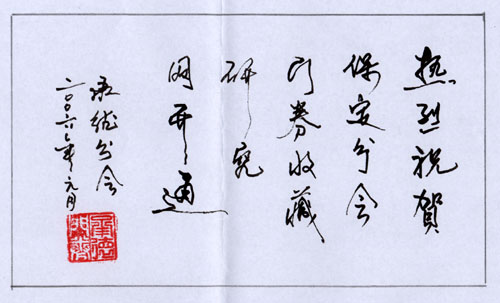 热烈祝賀
保定分会
门券收藏
研究
网开通
承德分会
二〇〇六年元月